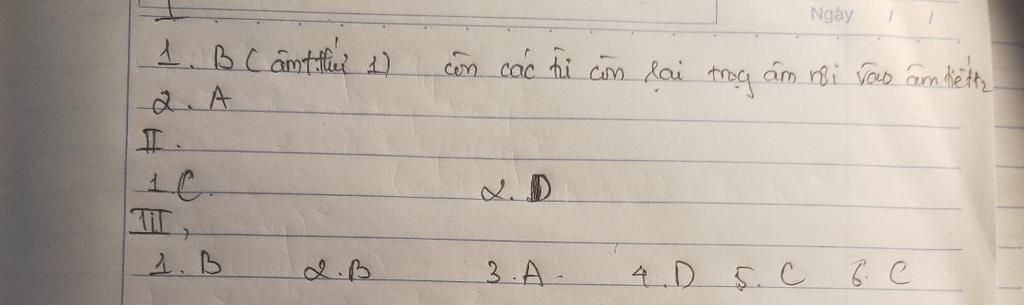 Ngày / /
I
1. B (âm thứ 1) còn các từ còn lại trọg âm rơi vào âm tiết t2
2. A
II.
1 C. 2. D
III,
1. B 2. B 3. A. 4. D 5. C 6. C